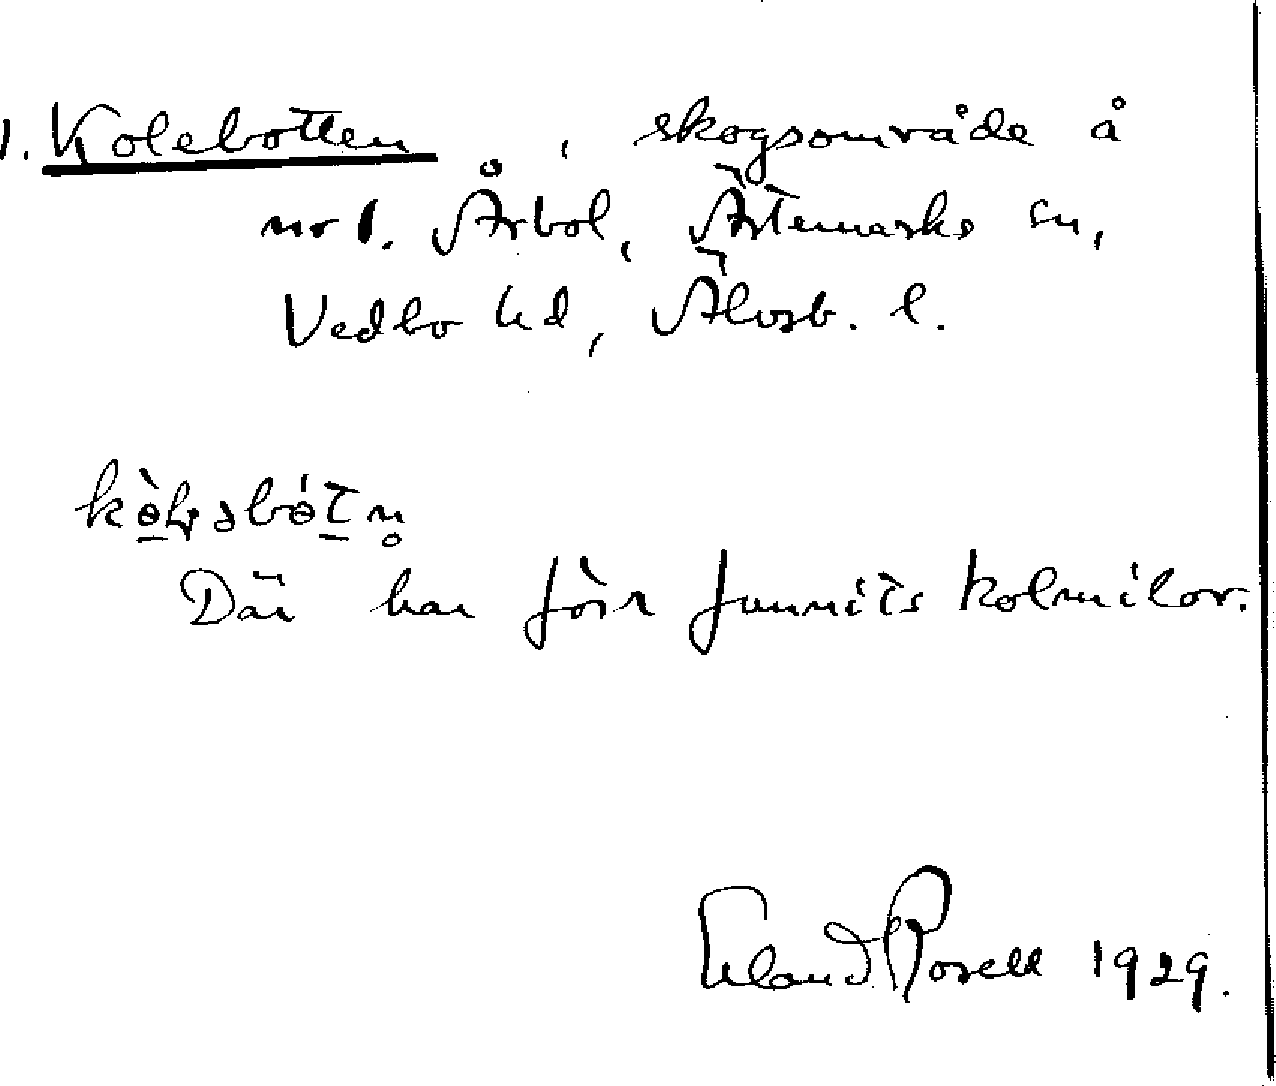 1. Kolebotten, skogsområde å
nr 1. Årbol, Ärtemarks sn,
Vedbo hd, Älvsb. l.
Där har förr funnits kolmilor.
Erland Rosell 1929.